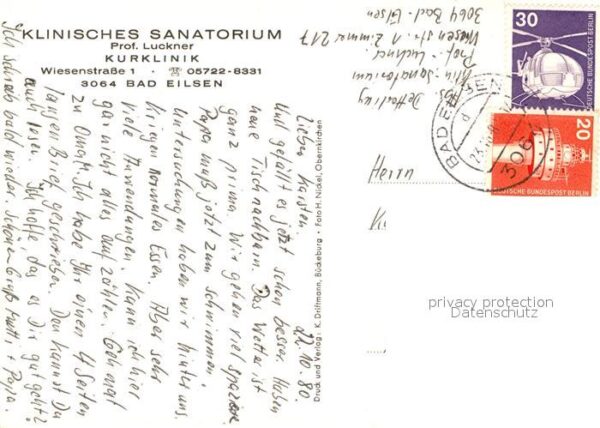 KLINISCHES SANATORIUM
Prof. Luckner
KURKLINIK
Wiesenstraße 1 · ☎ 05722-8331
3064 BAD EILSEN
22.10.80.
Lieber Karsten.
Uns gefällt es jetzt schon besser. Haben
neue Tischnachbarn. Das Wetter ist
ganz prima. Wir gehen viel spazieren
Papa muß jetzt zum schwimmen.
Untersuchungen haben wir hinter uns.
Kriegen normales Essen. Aber sehr
viele Anwendungen. Kann ich hier
gar nicht alles aufzählen. Geh mal
zu Oma. Ich habe Ihr einen 4 Seiten
langen Brief geschrieben. Den kannst Du
auch lesen. Ich hoffe das es Dir gut geht?
Ich schreib bald wieder. Schönen Gruß Mutti + Papa.
Druck und Verlag: K. Driftmann, Bückeburg · Foto H. Nickel, Obernkirchen
Klin. Sanatorium
Prof. Luckner
Wiesenstr. 1 Zimmer 217
3064 Bad-Eilsen
30
DEUTSCHE BUNDESPOST BERLIN
20
DEUTSCHE BUNDESPOST BERLIN
BAD EILSEN
d
3064
privacy protection
Datenschutz